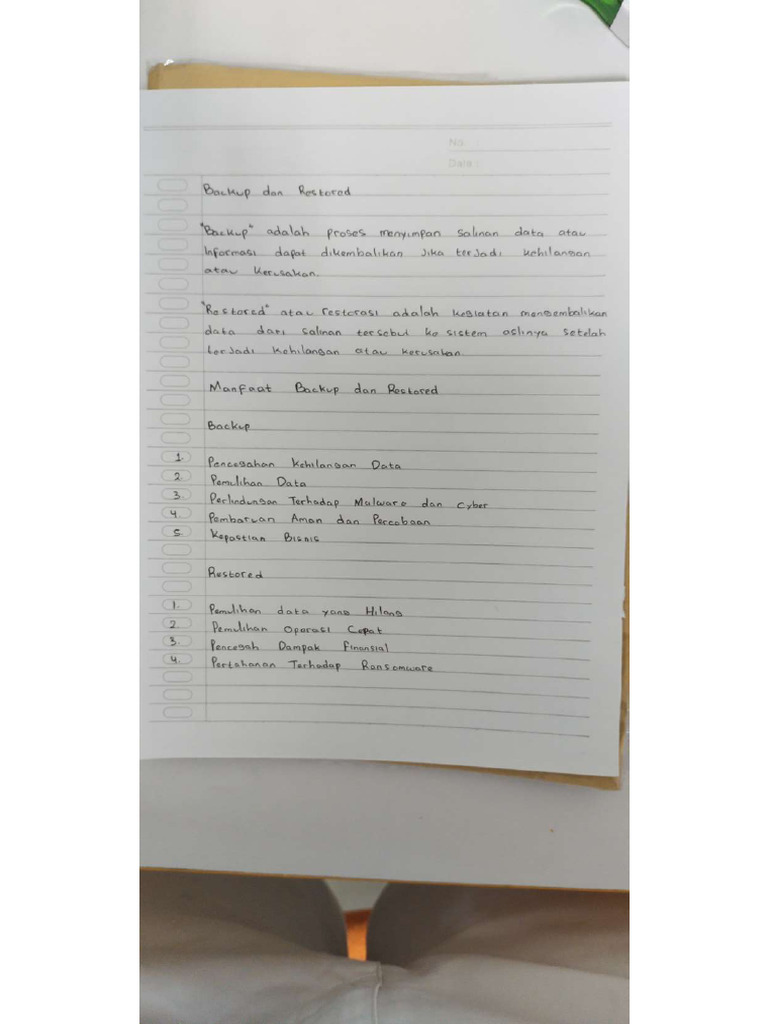 No :
Date :
Backup dan Restored
"Backup" adalah proses menyimpan salinan data atau
Informasi dapat dikembalikan Jika terjadi kehilangan
atau kerusakan.
"Restored" atau restorasi adalah kegiatan mengembalikan
data dari salinan tersebut ke sistem aslinya setelah
terjadi kehilangan atau kerusakan.
Manfaat Backup dan Restored
Backup
1. Pencegahan Kehilangan Data
2. Pemulihan Data
3. Perlindungan Terhadap Malware dan Cyber
4. Pembaruan Aman dan Percobaan
5. Kepastian Bisnis
Restored
1. Pemulihan data yang Hilang
2. Pemulihan Operasi Cepat
3. Pencegah Dampak Finansial
4. Pertahanan Terhadap Ransomware